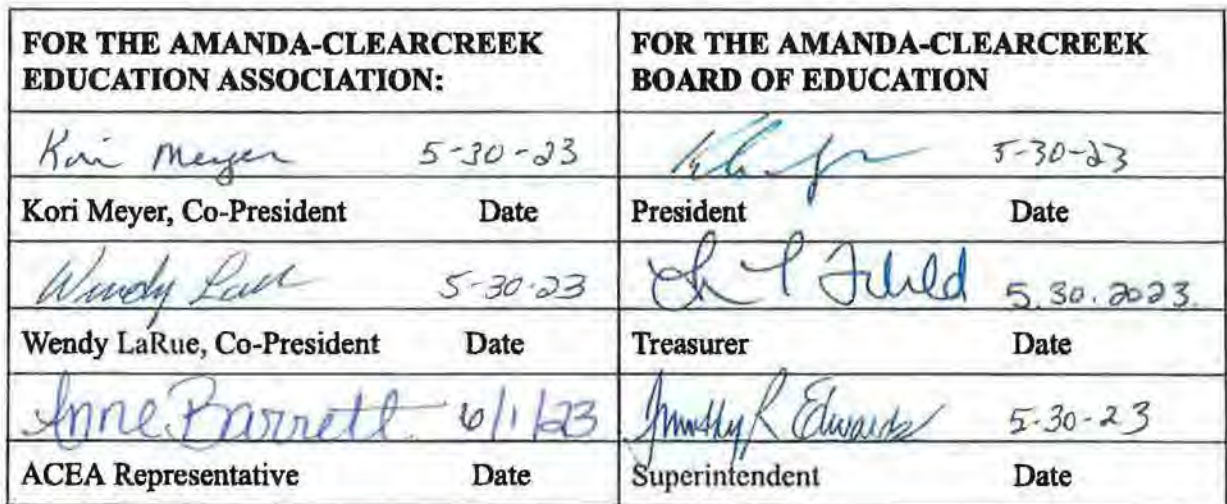 FOR THE AMANDA-CLEARCREEK
EDUCATION ASSOCIATION:
FOR THE AMANDA-CLEARCREEK
BOARD OF EDUCATION
Kori Meyer 5-30-23
5-30-23
Kori Meyer, Co-President Date
President Date
Wendy 5-30-23
5.30.2023
Wendy LaRue, Co-President Date
Treasurer Date
Anne Barrett 6/1/23
Timothy R Edwards 5-30-23
ACEA Representative Date
Superintendent Date